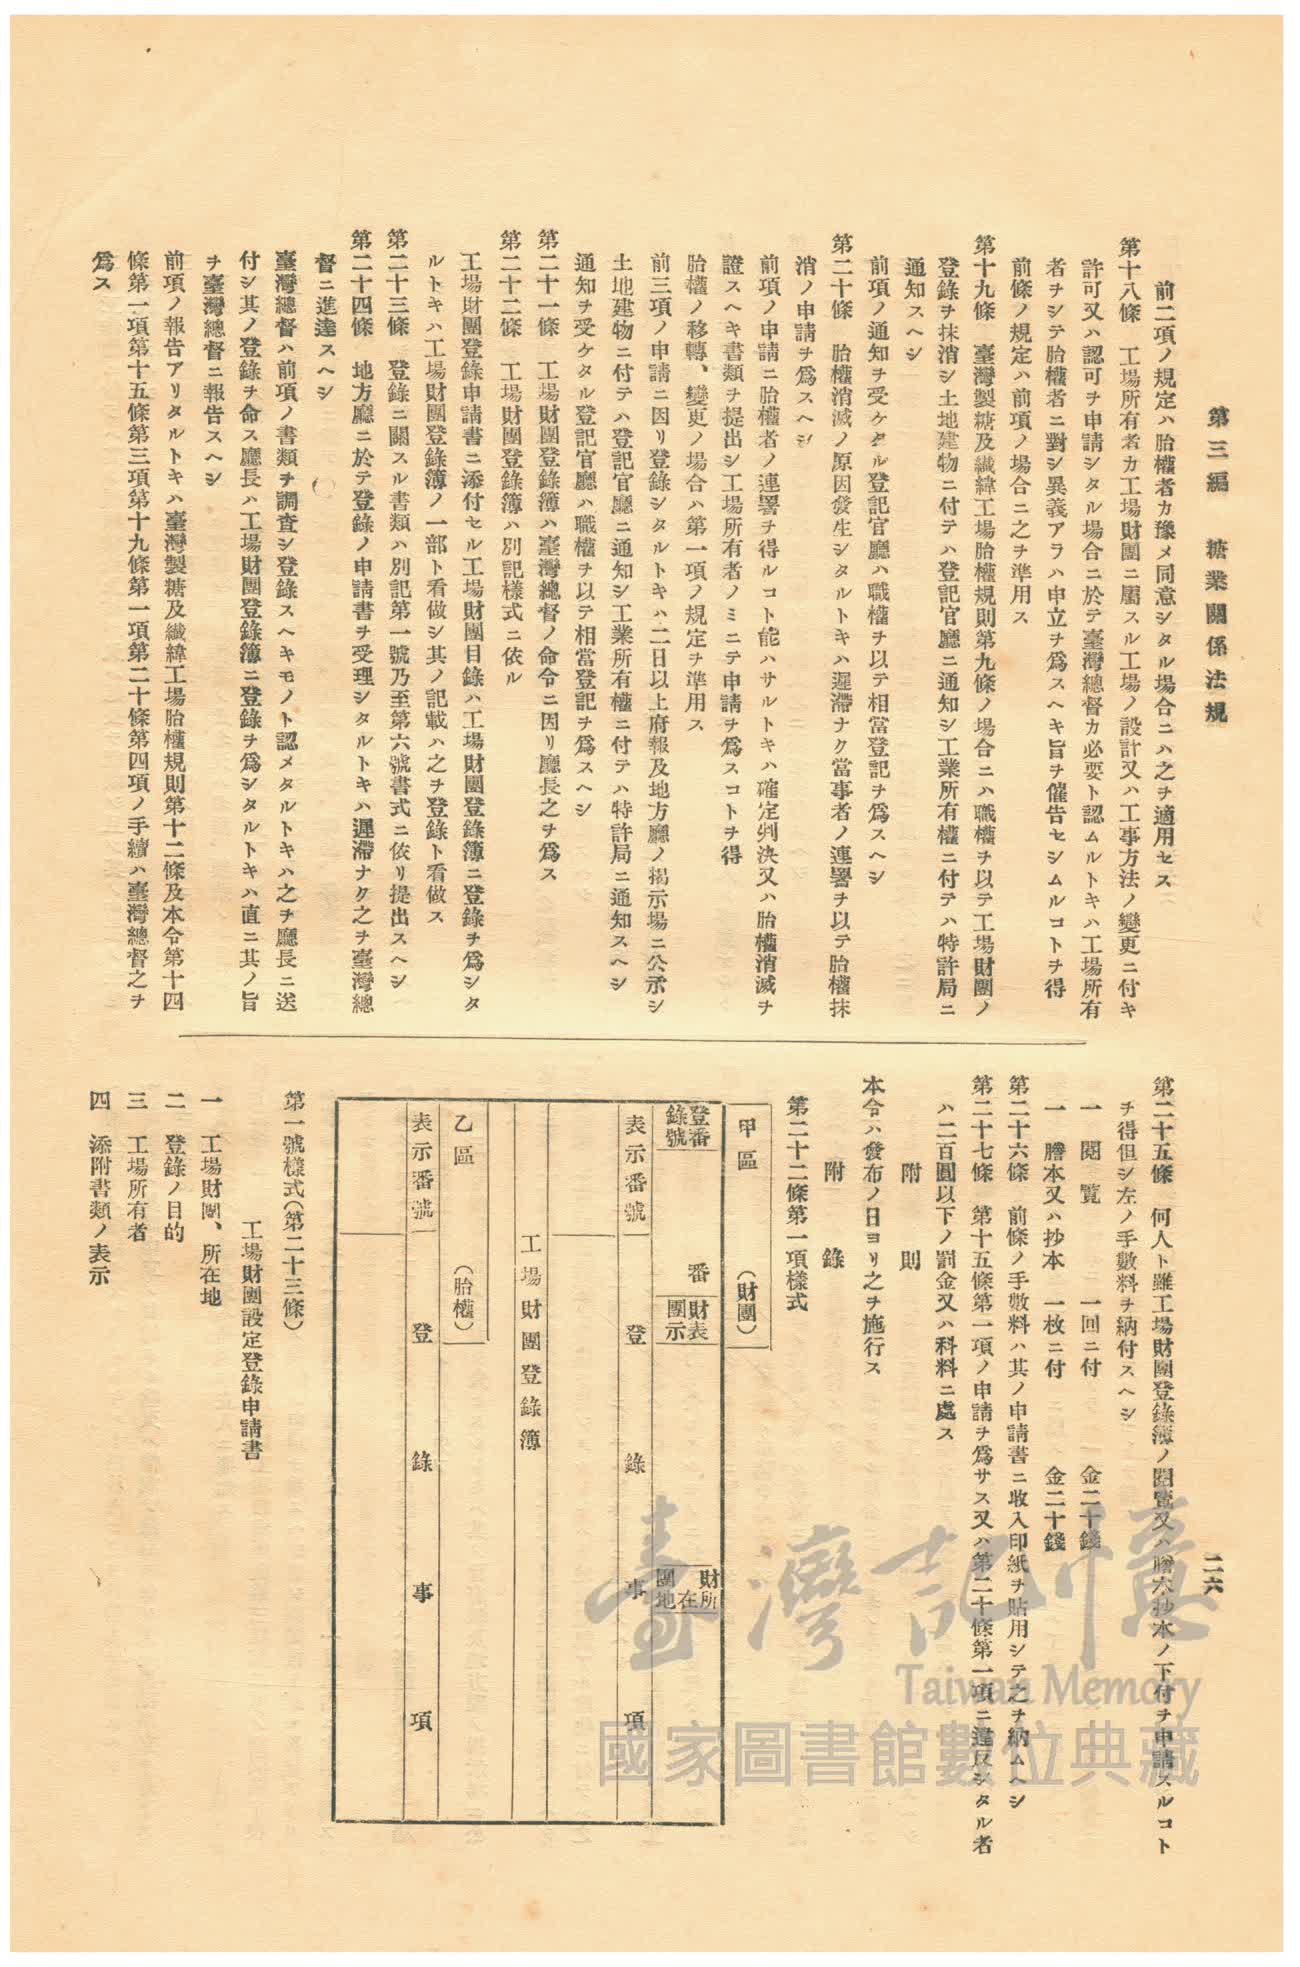 第三編　糖業關係法規
二六
前二項ノ規定ハ胎權者カ豫メ同意シタル場合ニハ之ヲ適用セス
第十八條　工場所有者カ工場財團ニ屬スル工場ノ設計又ハ工事方法ノ變更ニ付キ
許可又ハ認可ヲ申請シタル場合ニ於テ臺灣總督カ必要ト認ムルトキハ工場所有
者ヲシテ胎權者ニ對シ異義アラハ申立ヲ爲スヘキ旨ヲ催告セシムルコトヲ得
前條ノ規定ハ前項ノ場合ニ之ヲ準用ス
第十九條　臺灣製糖及纖緯工場胎權規則第九條ノ場合ニハ職權ヲ以テ工場財團ノ
登錄ヲ抹消シ土地建物ニ付テハ登記官廳ニ通知シ工業所有權ニ付テハ特許局ニ
通知スヘシ
前項ノ通知ヲ受ケタル登記官廳ハ職權ヲ以テ相當登記ヲ爲スヘシ
第二十條　胎權消滅ノ原因發生シタルトキハ遲滯ナク當事者ノ連署ヲ以テ胎權抹
消ノ申請ヲ爲スヘシ
前項ノ申請ニ胎權者ノ連署ヲ得ルコト能ハサルトキハ確定判決又ハ胎權消滅ヲ
證スヘキ書類ヲ提出シ工場所有者ノミニテ申請ヲ爲スコトヲ得
胎權ノ移轉、變更ノ場合ハ第一項ノ規定ヲ準用ス
前三項ノ申請ニ因リ登錄シタルトキハ二日以上府報及地方廳ノ揭示場ニ公示シ
土地建物ニ付テハ登記官廳ニ通知シ工業所有權ニ付テハ特許局ニ通知スヘシ
通知ヲ受ケタル登記官廳ハ職權ヲ以テ相當登記ヲ爲スヘシ
第二十一條　工場財團登錄簿ハ臺灣總督ノ命令ニ因リ廳長之ヲ爲ス
第二十二條　工場財團登錄簿ハ別記樣式ニ依ル
工場財團登錄申請書ニ添付セル工場財團目錄ハ工場財團登錄簿ニ登錄ヲ爲シタ
ルトキハ工場財團登錄簿ノ一部ト看做シ其ノ記載ハ之ヲ登錄ト看做ス
第二十三條　登錄ニ關スル書類ハ別記第一號乃至第六號書式ニ依リ提出スヘシ
第二十四條　地方廳ニ於テ登錄ノ申請書ヲ受理シタルトキハ遲滯ナク之ヲ臺灣總
督ニ進達スヘシ
臺灣總督ハ前項ノ書類ヲ調査シ登錄スヘキモノト認メタルトキハ之ヲ廳長ニ送
付シ其ノ登錄ヲ命ス廳長ハ工場財團登錄簿ニ登錄ヲ爲シタルトキハ直ニ其ノ旨
ヲ臺灣總督ニ報告スヘシ
前項ノ報告アリタルトキハ臺灣製糖及纖緯工場胎權規則第十二條及本令第十四
條第一項第十五條第三項第十九條第一項第二十條第四項ノ手續ハ臺灣總督之ヲ
爲ス
第二十五條　何人ト雖工場財團登錄簿ノ閱覽又ハ謄本抄本ノ下付ヲ申請スルコト
ヲ得但シ左ノ手數料ヲ納付スヘシ
一　閱覽　一回ニ付　金二十錢
一　謄本又ハ抄本　一枚ニ付　金二十錢
第二十六條　前條ノ手數料ハ其ノ申請書ニ收入印紙ヲ貼用シテ之ヲ納ムヘシ
第二十七條　第十五條第一項ノ申請ヲ爲サス又ハ第二十條第一項ニ違反シタル者
ハ二百圓以下ノ罰金又ハ科料ニ處ス
附則
本令ハ發布ノ日ヨリ之ヲ施行ス
附錄
第二十二條第一項樣式
甲區　（財團）
登錄番號　番　財團表示　財團所在地
表示番號　登錄事項
工場財團登錄簿
乙區　（胎權）
表示番號　登錄事項
第一號樣式（第二十三條）
工場財團設定登錄申請書
一　工場財團、所在地
二　登錄ノ目的
三　工場所有者
四　添附書類ノ表示
臺灣記憶
Taiwan Memory
國家圖書館數位典藏